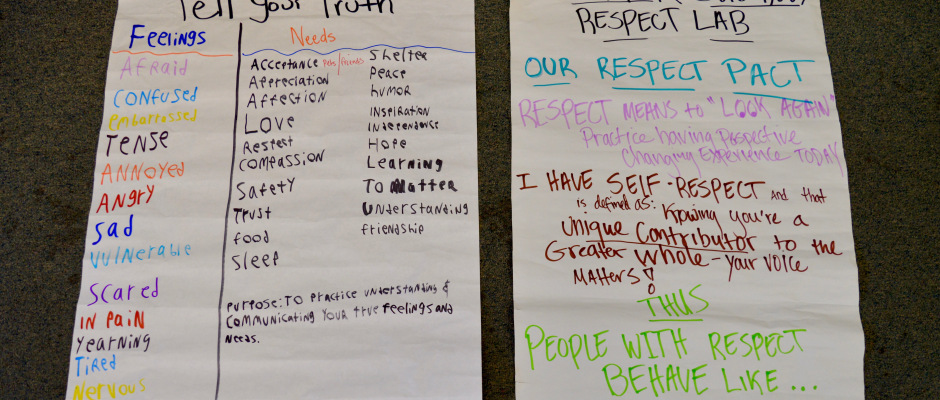 Tell your Truth
Feelings
Afraid
CONFUSED
embarrassed
TENSE
ANNOYED
ANGRY
Sad
VUlNeRable
SCARED
IN PAIN
yearning
TIRed
NeRvous
Needs
Acceptance Pets/friends
Appreciation
Affection
LOVE
Respect
COMPASSION
Safety
Trust
food
Sleep
Shelter
Peace
humor
INSPIRATION
Independence
Hope
Learning
To Matter
Understanding
friendship
Purpose: TO Practice UNderstanding &
COMMUNicating YOUR tRue feelings and
Needs.
RESPECT LAB
OUR RESPECT PACT
RESPECT MEANS to "LOOK AGAIN"
Practice having Perspective
Changing Experience TODAY
I HAVE SELF-RESPECT AND that
is defined as: Knowing you're a
Unique Contributor to the
Greater Whole - your VOICE
MATTERS!
THUS
PEOPLE WITH RESPECT
BEHAVE LIKE ...